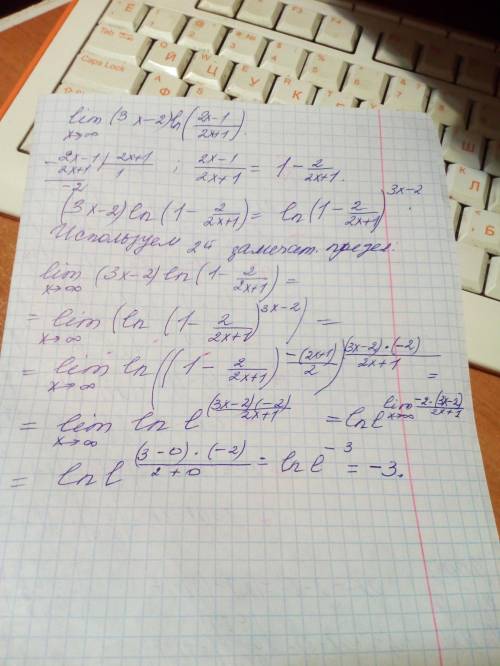 lim (3x-2) ln((2x-1)/(2x+1))
x→∞
2x-1 | 2x+1
2x+1 | 1 ; (2x-1)/(2x+1) = 1 - 2/(2x+1).
-2
(3x-2) ln(1 - 2/(2x+1)) = ln(1 - 2/(2x+1))^(3x-2).
Используем 2й замечат. предел:
lim (3x-2) ln(1 - 2/(2x+1)) =
x→∞
= lim (ln (1 - 2/(2x+1))^(3x-2)) =
x→∞
= lim ln((1 - 2/(2x+1))^(-(2x+1)/2))^((3x-2)·(-2)/(2x+1)) =
x→∞
= lim ln e^((3x-2)(-2)/(2x+1)) = ln e^(lim x→∞ -2·(3x-2)/(2x+1))
x→∞
= ln e^((3-0)·(-2)/(2+0)) = ln e^(-3) = -3.
Tab
Caps Lock
Ё
Й
Ц
У
Ф
Ы